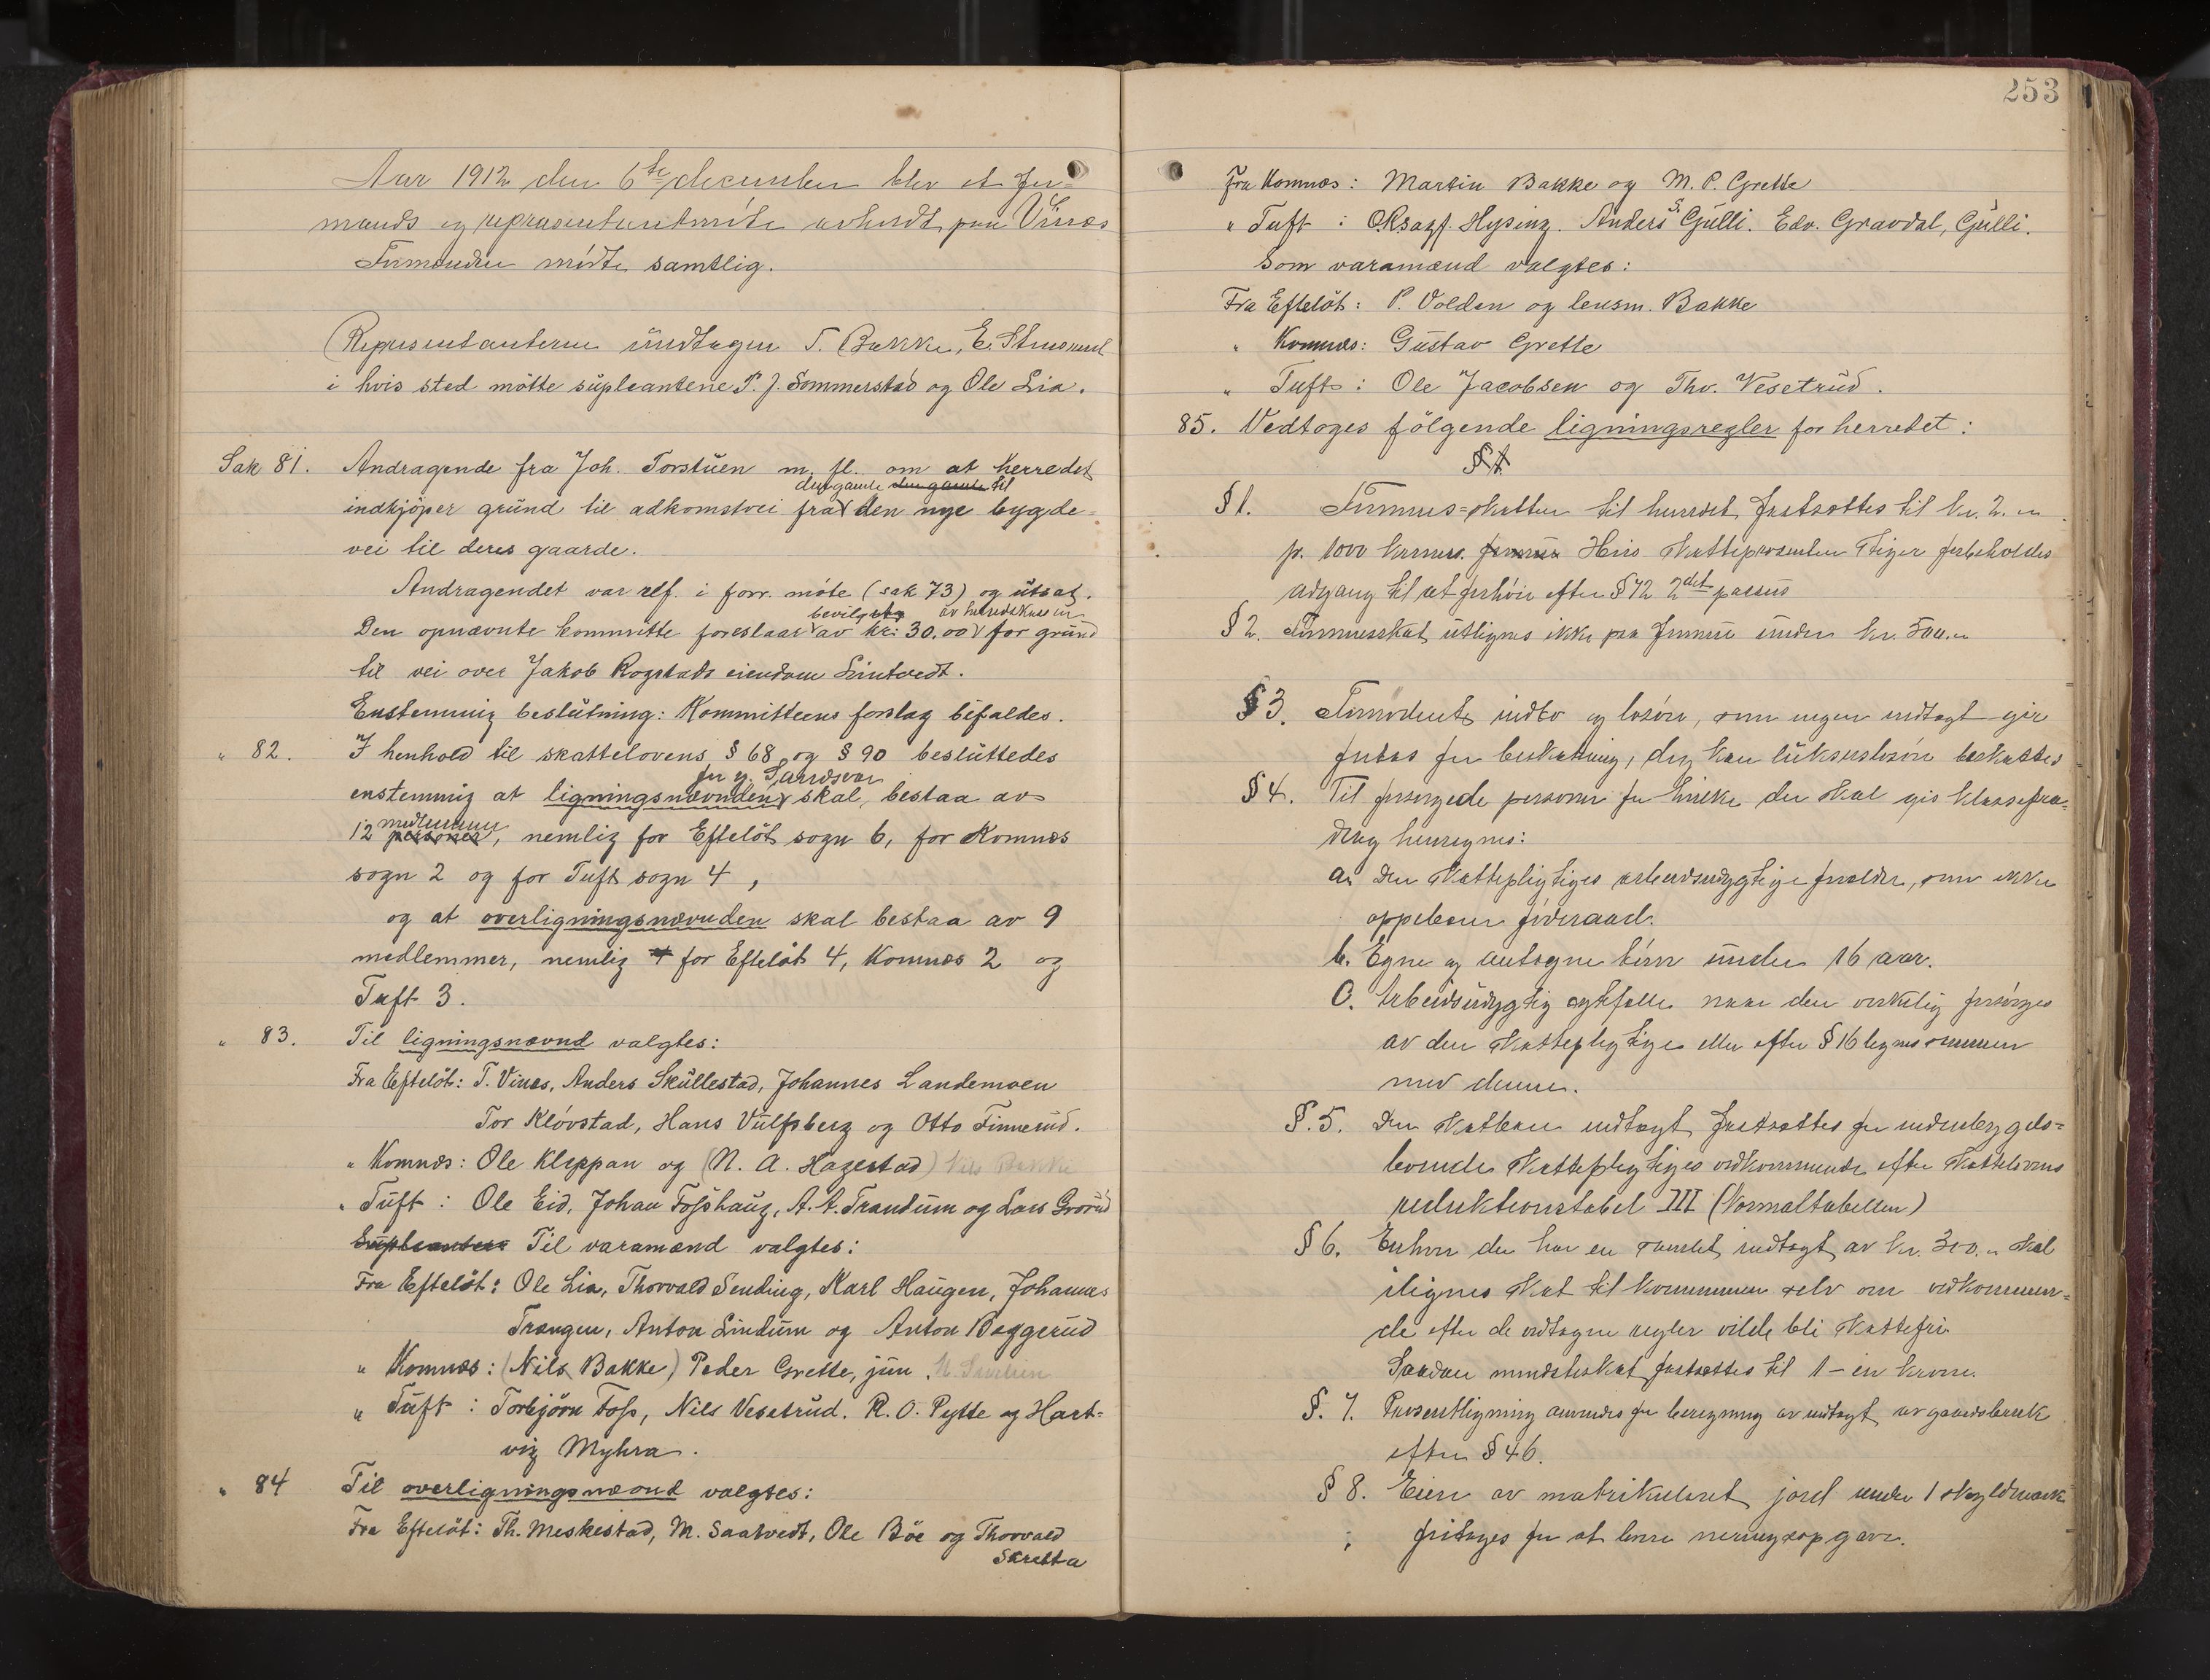 Aar 1912 den 6te december blev et for-
mands og repræsentantmöte avholdt paa Vinæs
Formændene mödte samtlig.
Representanterne undtagen T. Bakke, E.
i hvis sted mötte supleantene P. J. Sommerstad og Ole Lia.
Sak 81. Andragende fra Joh. Torstuen m. fl. om at herredet
den gamle den gamle til
indkjöper grund til adkomstvei fra den nye bygde-
vei til deres gaarde.
Andragendet var ref. i forr. möte (sak 73) og utsat.
bevilget av herredskassen
Den opnævnte kommitte foreslaar av kr: 30.00 for grund
til vei over Jakob Rogstads eiendom Lintvedt.
Enstemmig beslutning: Kommitteens forslag bifaldes.
" 82. I henhold til skattelovens § 68 og § 90 besluttedes
for y. Sandsvær
enstemmig at ligningsnævnden skal bestaa av
medlemmer
12 personer, nemlig for Efteløt sogn 6, for Komnæs
sogn 2 og for Tuft sogn 4,
og at overligningsnævnden skal bestaa av 9
medlemmer, nemlig 4 for Efteløt 4, Komnæs 2 og
Tuft 3.
" 83. Til ligningsnævnd valgtes:
Fra Efteløt: T. Vinæs, Anders Skullestad, Johannes Landemoen
Tor Klövstad, Hans Vulfsberg og Otto Finnerud.
" Komnæs: Ole Kleppan og (N. A. Hagestad) Nils Bakke
" Tuft: Ole Eid, Johan Fosshaug, A. A. Trandum og Lars Grorud
Supleanter Til varamænd valgtes:
Fra Efteløt: Ole Lia, Thorvald Sending, Karl Haugen, Johannes
Trængen, Anton Lindum og Anton Baggerud
" Komnæs: (Nils Bakke) Peder Grette, jun.
" Tuft: Torbjörn Foss, Nils Vesetrud. R. O. Pytte og Hart-
vig Myhra.
" 84 Til overligningsnævnd valgtes:
Fra Efteløt: Th. Meskestad, M. Saatvedt, Ole Böe og Thorvald
Skretta
253
Fra Komnæs: Martin Bakke og M. P. Grette
" Tuft: Hysing. Anders S. Gulli. Edv. Gravdal, Gulli.
Som varamænd valgtes:
Fra Efteløt: P. Volden og lensm. Bakke
" Komnæs: Gustav Grette
" Tuft: Ole Jacobsen og Thv. Vesetrud.
85. Vedtoges fölgende ligningsregler for herredet:
§ 1.
§ 1. Formues=skatten til herredet fastsættes til kr. 2.
p. 1000 kroners formue Hvis skatteprosenten stiger forbeholdes
adgang til at forhöie efter § 72 2det passus
§ 2. Formuesskat utlignes ikke paa formue under kr. 500."
§ 3. indbo og lösöre, som ingen indtægt gir
fritas for beskatning, dog kan luksuslösöre beskattes
§ 4. Til forsörgede personer for hvilke der skal gis klassefra-
drag henregnes:
a. Den skattepligtiges arbeidsudygtige forældre, som ikke
oppebærer föderaad.
b. Egne og antagne börn under 16 aar.
c. Arbeidsudygtig egtefælle naar den virkelig forsörges
av den skattepligtige eller efter § 16 lignes sammen
med denne.
§. 5. Den skatbare indtægt fastsættes for indenbygds=
boende skattepligtiges vedkommende efter skattelovens
reduktionstabel III (Normaltabellen)
§ 6. Enhver der har en samlet indtægt av kr. 300." skal
ilignes skat til kommunen selv om vedkommen=
de efter de vedtagne regler vilde bli skattefri
Saadan mindsteskat fastsættes til 1 – en krone.
§. 7. Prosentligning anvendes for beregning av indtægt av gaardsbruk
efter § 46.
§ 8. Eiere av matrikuleret jord under 1 skyldmark
fritages for at levere næringsopgave.